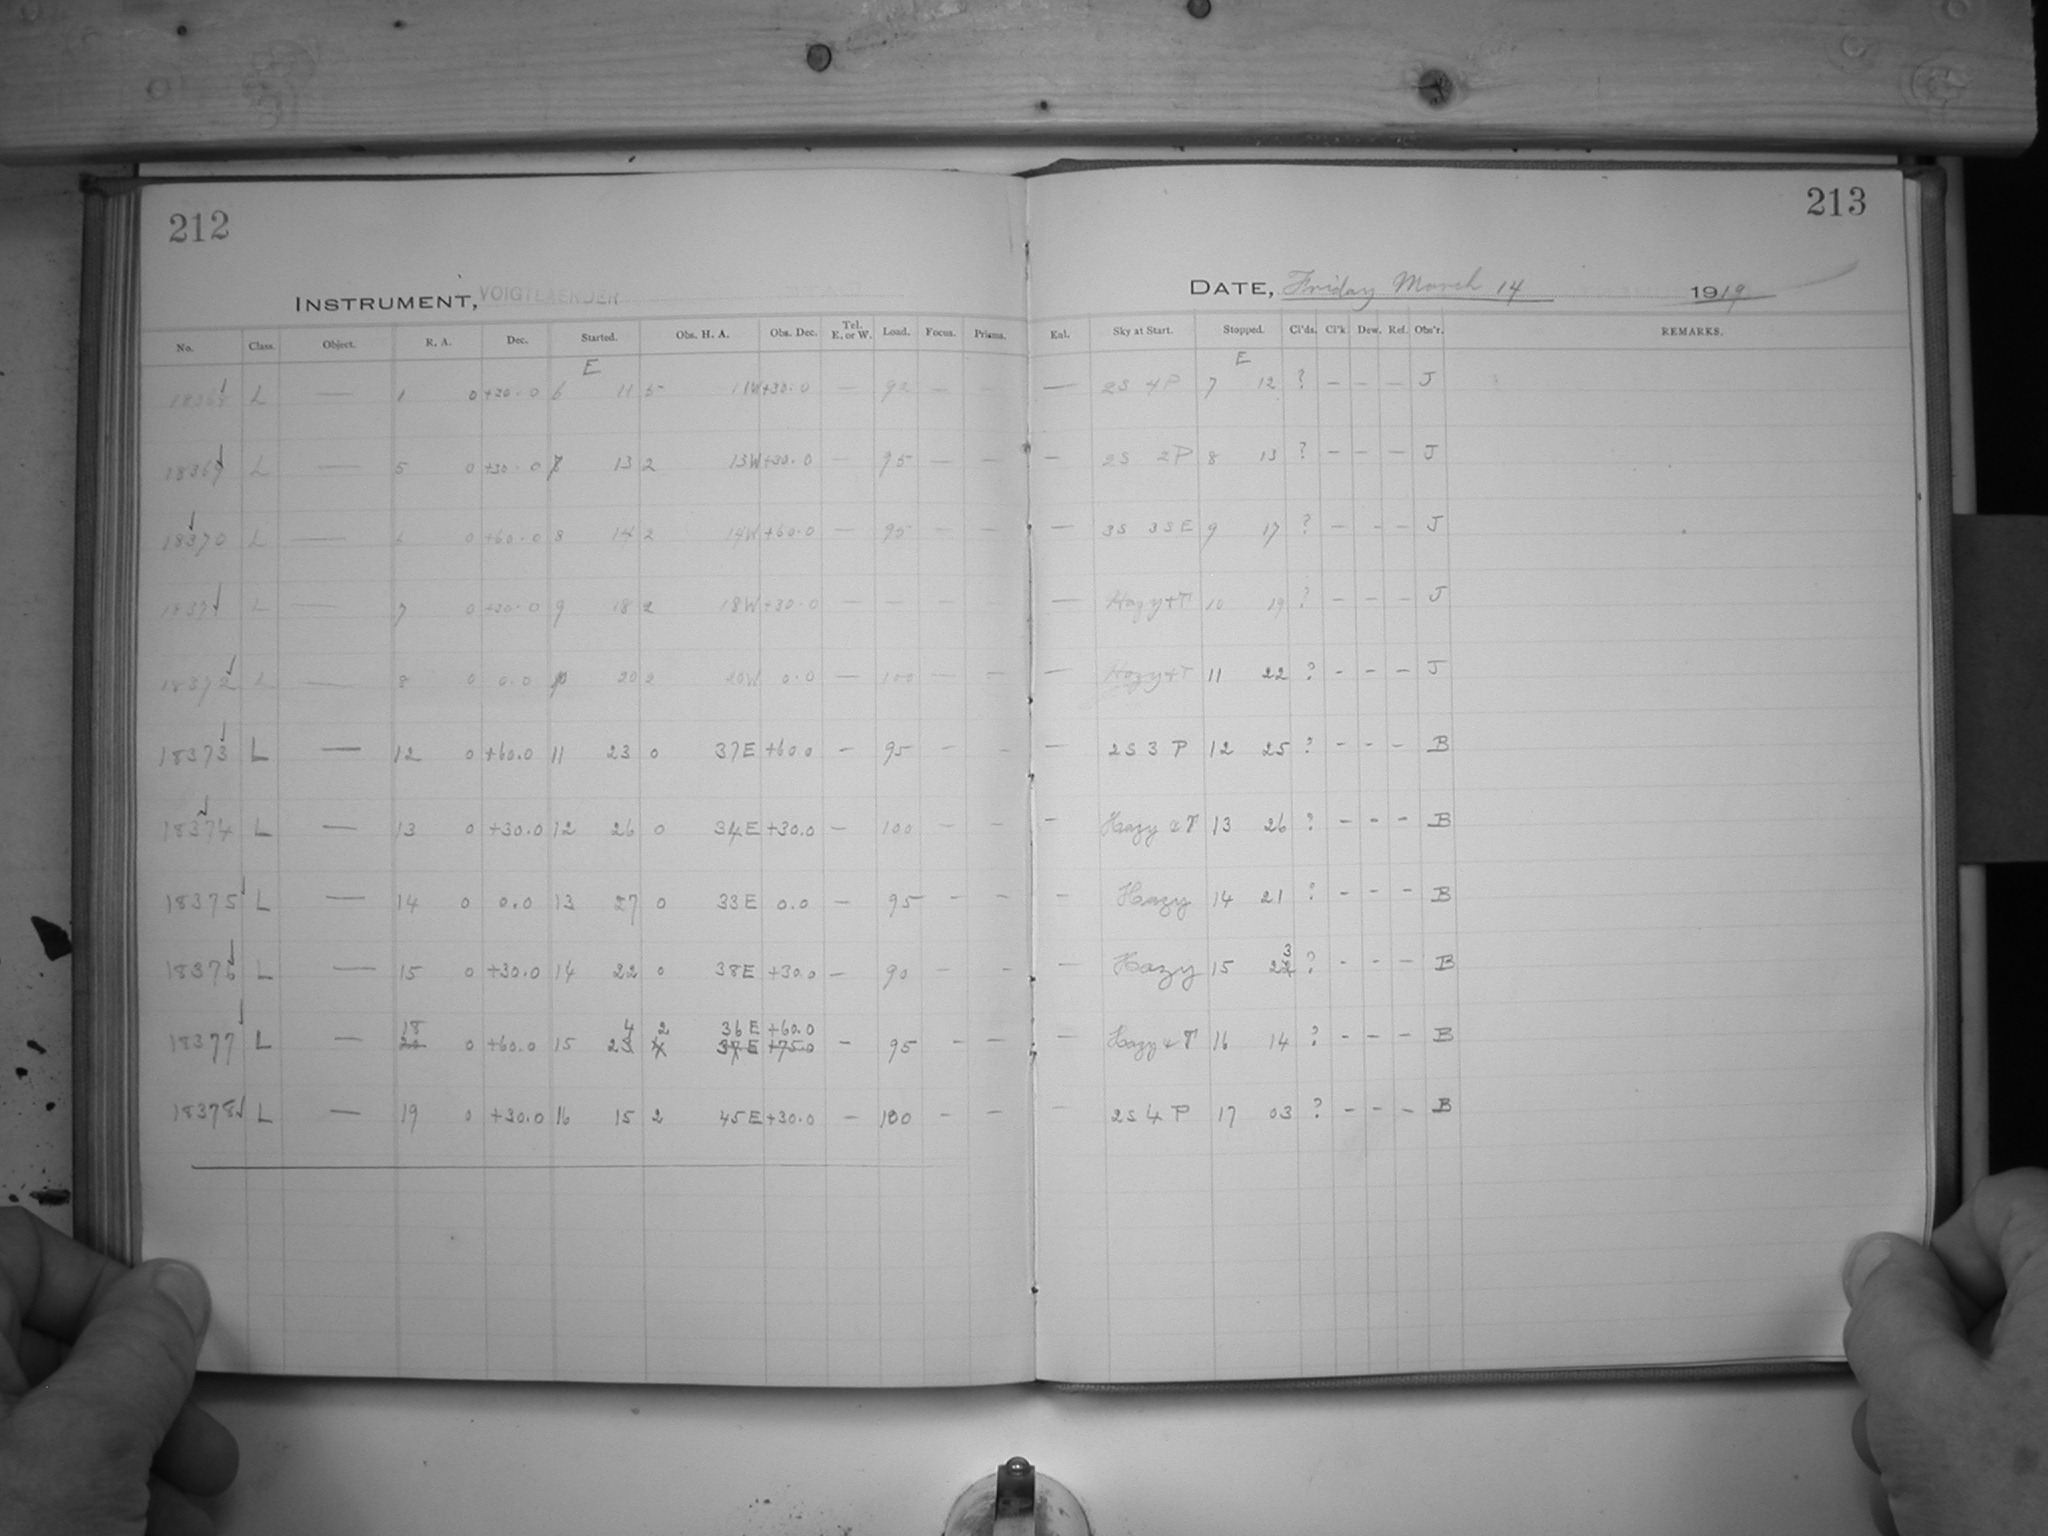 212
213
INSTRUMENT, VOIGTLAENDER
DATE, Friday March 14 1919
No. Class. Object. R. A. Dec. Started. Obs. H. A. Obs. Dec. Tel. E. or W. Load. Focus. Prisms. Enl. Sky at Start. Stopped. Cl'ds. Cl'k Dew. Ref. Obs'r. REMARKS.
E E
L — 1 0 +30.0 6 11 5 11W +30.0 — 92 — — — 2S 4P 7 12 ? — — — J
L — 5 0 +30.0 7 13 2 13W +30.0 — 95 — — — 2S 2P 8 13 ? — — — J
18370 L — 6 0 +60.0 8 14 2 14W +60.0 — 95 — — — 3S 3SE 9 17 ? — — — J
18371 L — 7 0 +30.0 9 18 2 18W +30.0 — — — — — Hazy+T 10 19 ? — — — J
18372 L — 8 0 0.0 10 20 2 20W 0.0 — 100 — — — Hazy+T 11 22 ? — — — J
18373 L — 12 0 +60.0 11 23 0 37E +60.0 — 95 — — — 2S 3 P 12 25 ? — — — B
18374 L — 13 0 +30.0 12 26 0 34E +30.0 — 100 — — — Hazy & T 13 26 ? — — — B
18375 L — 14 0 0.0 13 27 0 33E 0.0 — 95 — — — Hazy 14 21 ? — — — B
18376 L — 15 0 +30.0 14 22 0 38E +30.0 — 90 — — — Hazy 15 22 3 ? — — — B
18 4 2 36E +60.0
18377 L — 20 0 +60.0 15 23 37E +75.0 — 95 — — — Hazy & T 16 14 ? — — — B
18378 L — 19 0 +30.0 16 15 2 45E +30.0 — 100 — — — 2S 4 P 17 03 ? — — — B